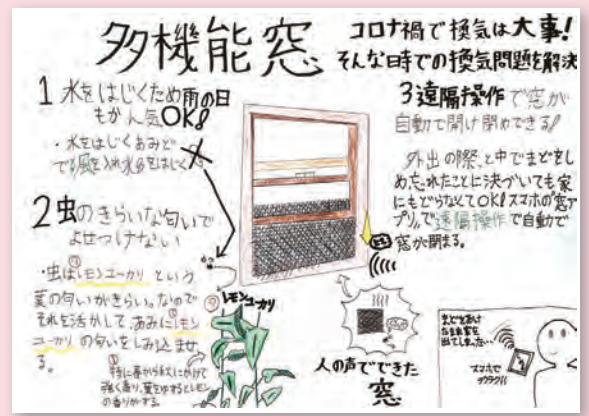 多機能窓
コロナ禍で換気は大事!
そんな日時での換気問題を解決
1 水をはじくため雨の日
もかん気OK!
・水をはじくあみど
で風を入れ水分をはじく
2 虫のきらいな匂いで
よせつけない
・虫はレモンユーカリという
葉の匂いがきらい。なので
それを活かして、あみにレモン
ユーカリの匂いをしみ込ませ
る。
特に暮から秋にかけて
強く香り、葉をゆするとレモン
の香りがする。
レモンユーカリ
3 遠隔操作で窓が
自動で開け閉めできる!
外出の際、と中でまどをし
め忘れたことに決づいても家
にもどらなくてOK!スマホの"窓ア
プリ"で遠隔操作で自動で
窓が閉まる。
人の声でできた
窓
まどをあけ
たまま家を
出てしまった…
スマホで
ラクラク!!